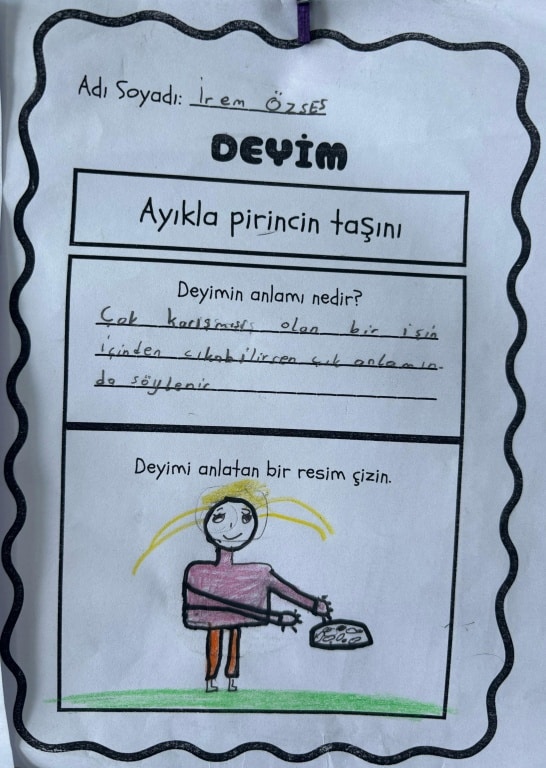 Adı Soyadı: İrem ÖZSES
DEYİM
Ayıkla pirincin taşını
Deyimin anlamı nedir?
Çok karışmış olan bir işin
içinden çıkabilirsen çık anlamın-
da söylenir
Deyimi anlatan bir resim çizin.